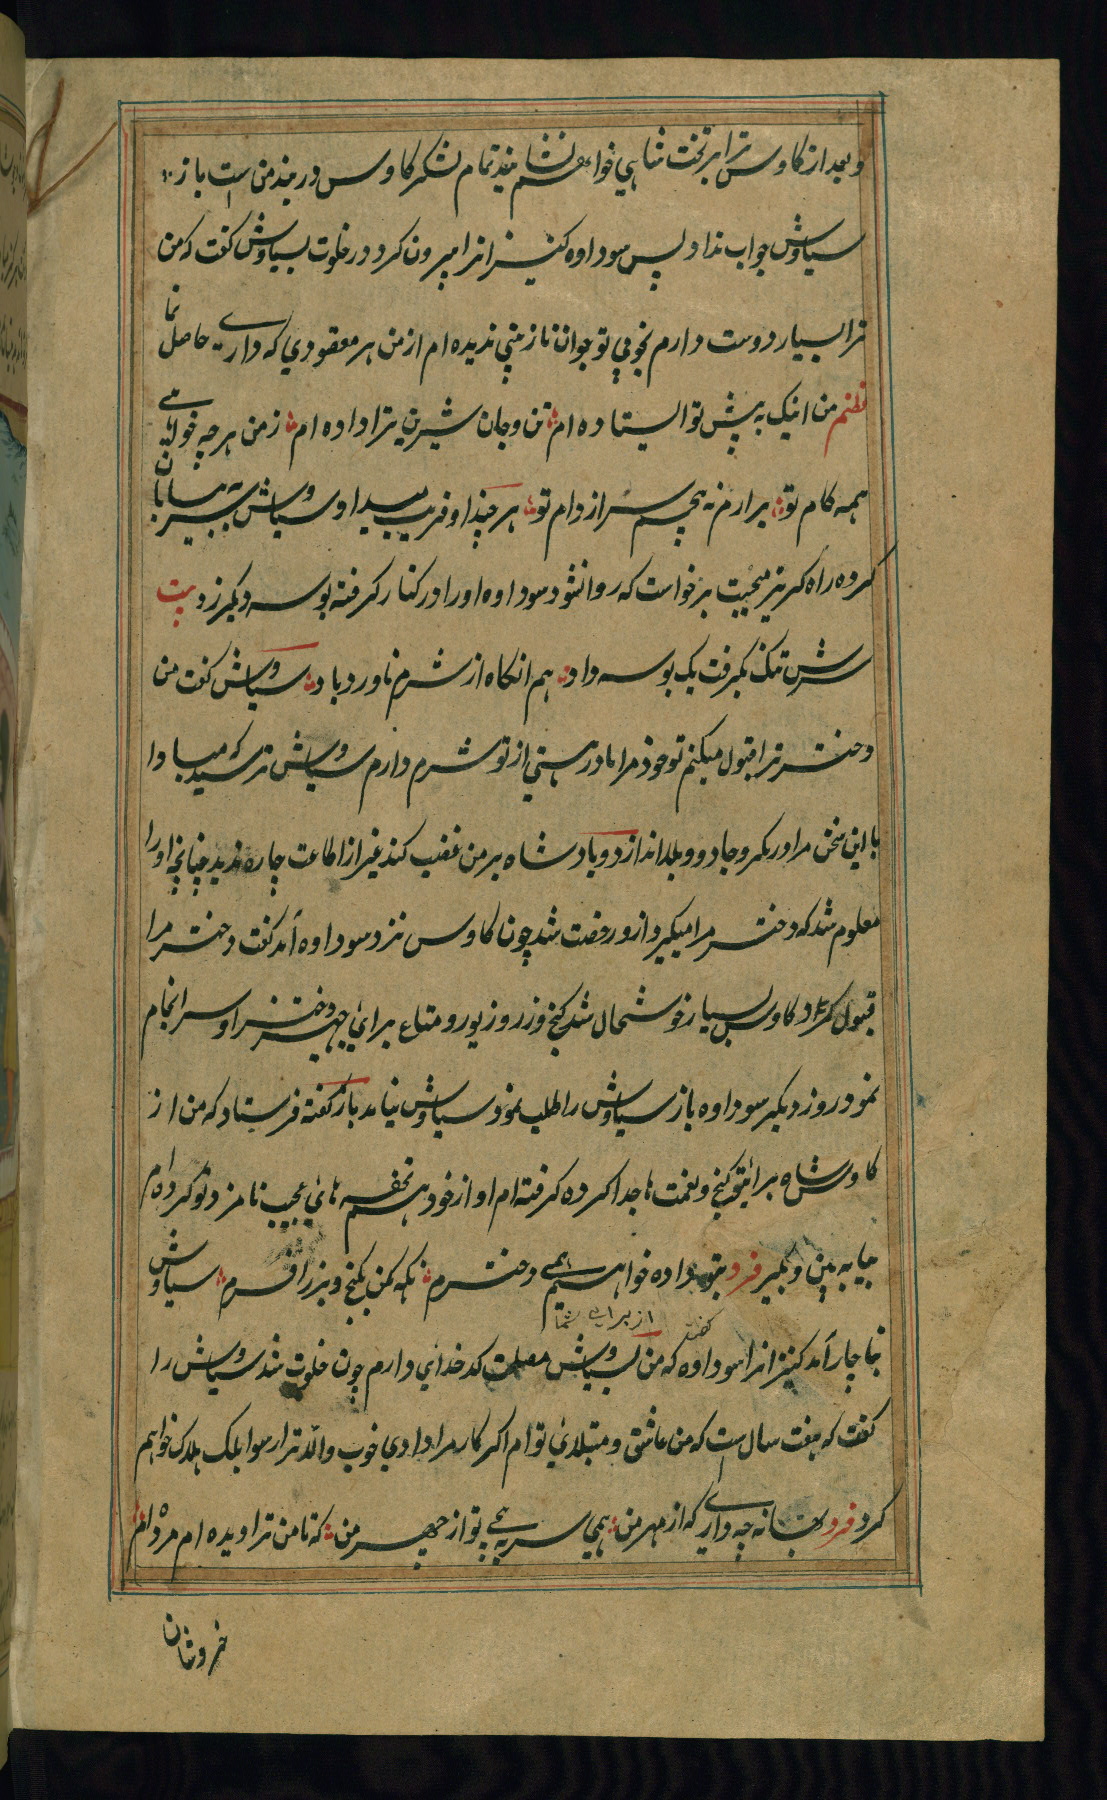 و بعد از کاوس ترا بر تخت شاهی خواهم نشانید تمام لشکر کاوس در بند من است باز
سیاوش جواب نداد پس سوداوه کنیزانرا بیرون کرد در خلوت بسیاوش گفت که من
ترا بسیار دوست دارم بخوبی تو جوان نازنینی ندیده ام از من هر مقصودی که داری حاصل نما
نظم من اینک به پیش تو ایستاده ام تن و جان شیرین ترا داده ام ز من هر چه خواهی
همه کام تو برارم نه پیچم سر از دام تو هر چند او فریب میداد سیاوش
راه گریز میجست برخواست که روانشود سوداوه او را در کنار گرفته بوسه دیگر زد بیت
سرش تنگ بگرفت یک بوسه داد هم انگاه از شرم ناورد یاد سیاوش گفت من
دختر ترا قبول میکنم تو خود مرا مادر هستی از تو شرم دارم سیاوش ترسید که مبادا
با این سخن مرا در مکر و جادو و بلا اندازد و پادشاه بر من غضب کند غیر از اطاعت چاره ندید چنانچه او را
معلوم شد که دختر مرا میگیرد ازو رخصت شد چون کاوس نزد سوداوه آمد گفت دختر مرا
قبول کرد کاوس بسیار خوشحال شد گنج و زر و زیور و متاع برای جهیز دختر او سرانجام
نمود روز دیگر سوداوه باز سیاوش را طلب نمود سیاوش نیامد باز گفته فرستاد که من از
کاوس شاه برای تو گنج و نعمت ها جدا کرده گرفته ام و از خود هم تحفه های عجیب نامزد تو کرده ام
بیا به بین و بگیر فرد بتو داده خواهم همی دخترم نگه کن بگنج و بزر افسرم سیاوش
ناچار آمد کنیزانرا سوداوه گفت که من بسیاوش مصلحت کدخدای دارم چون خلوت شد سیاوش را
از برای شما
گفت که هفت سال است که من عاشق و مبتلای تو ام اگر کار مرا دادی خوب والا ترا رسوا بلک هلاک خواهم
کرد فرد بهانه چه داری که از مهر من همی سر به پیچی تو از چهر من که تا من ترا دیده ام مرده ام
خروشان